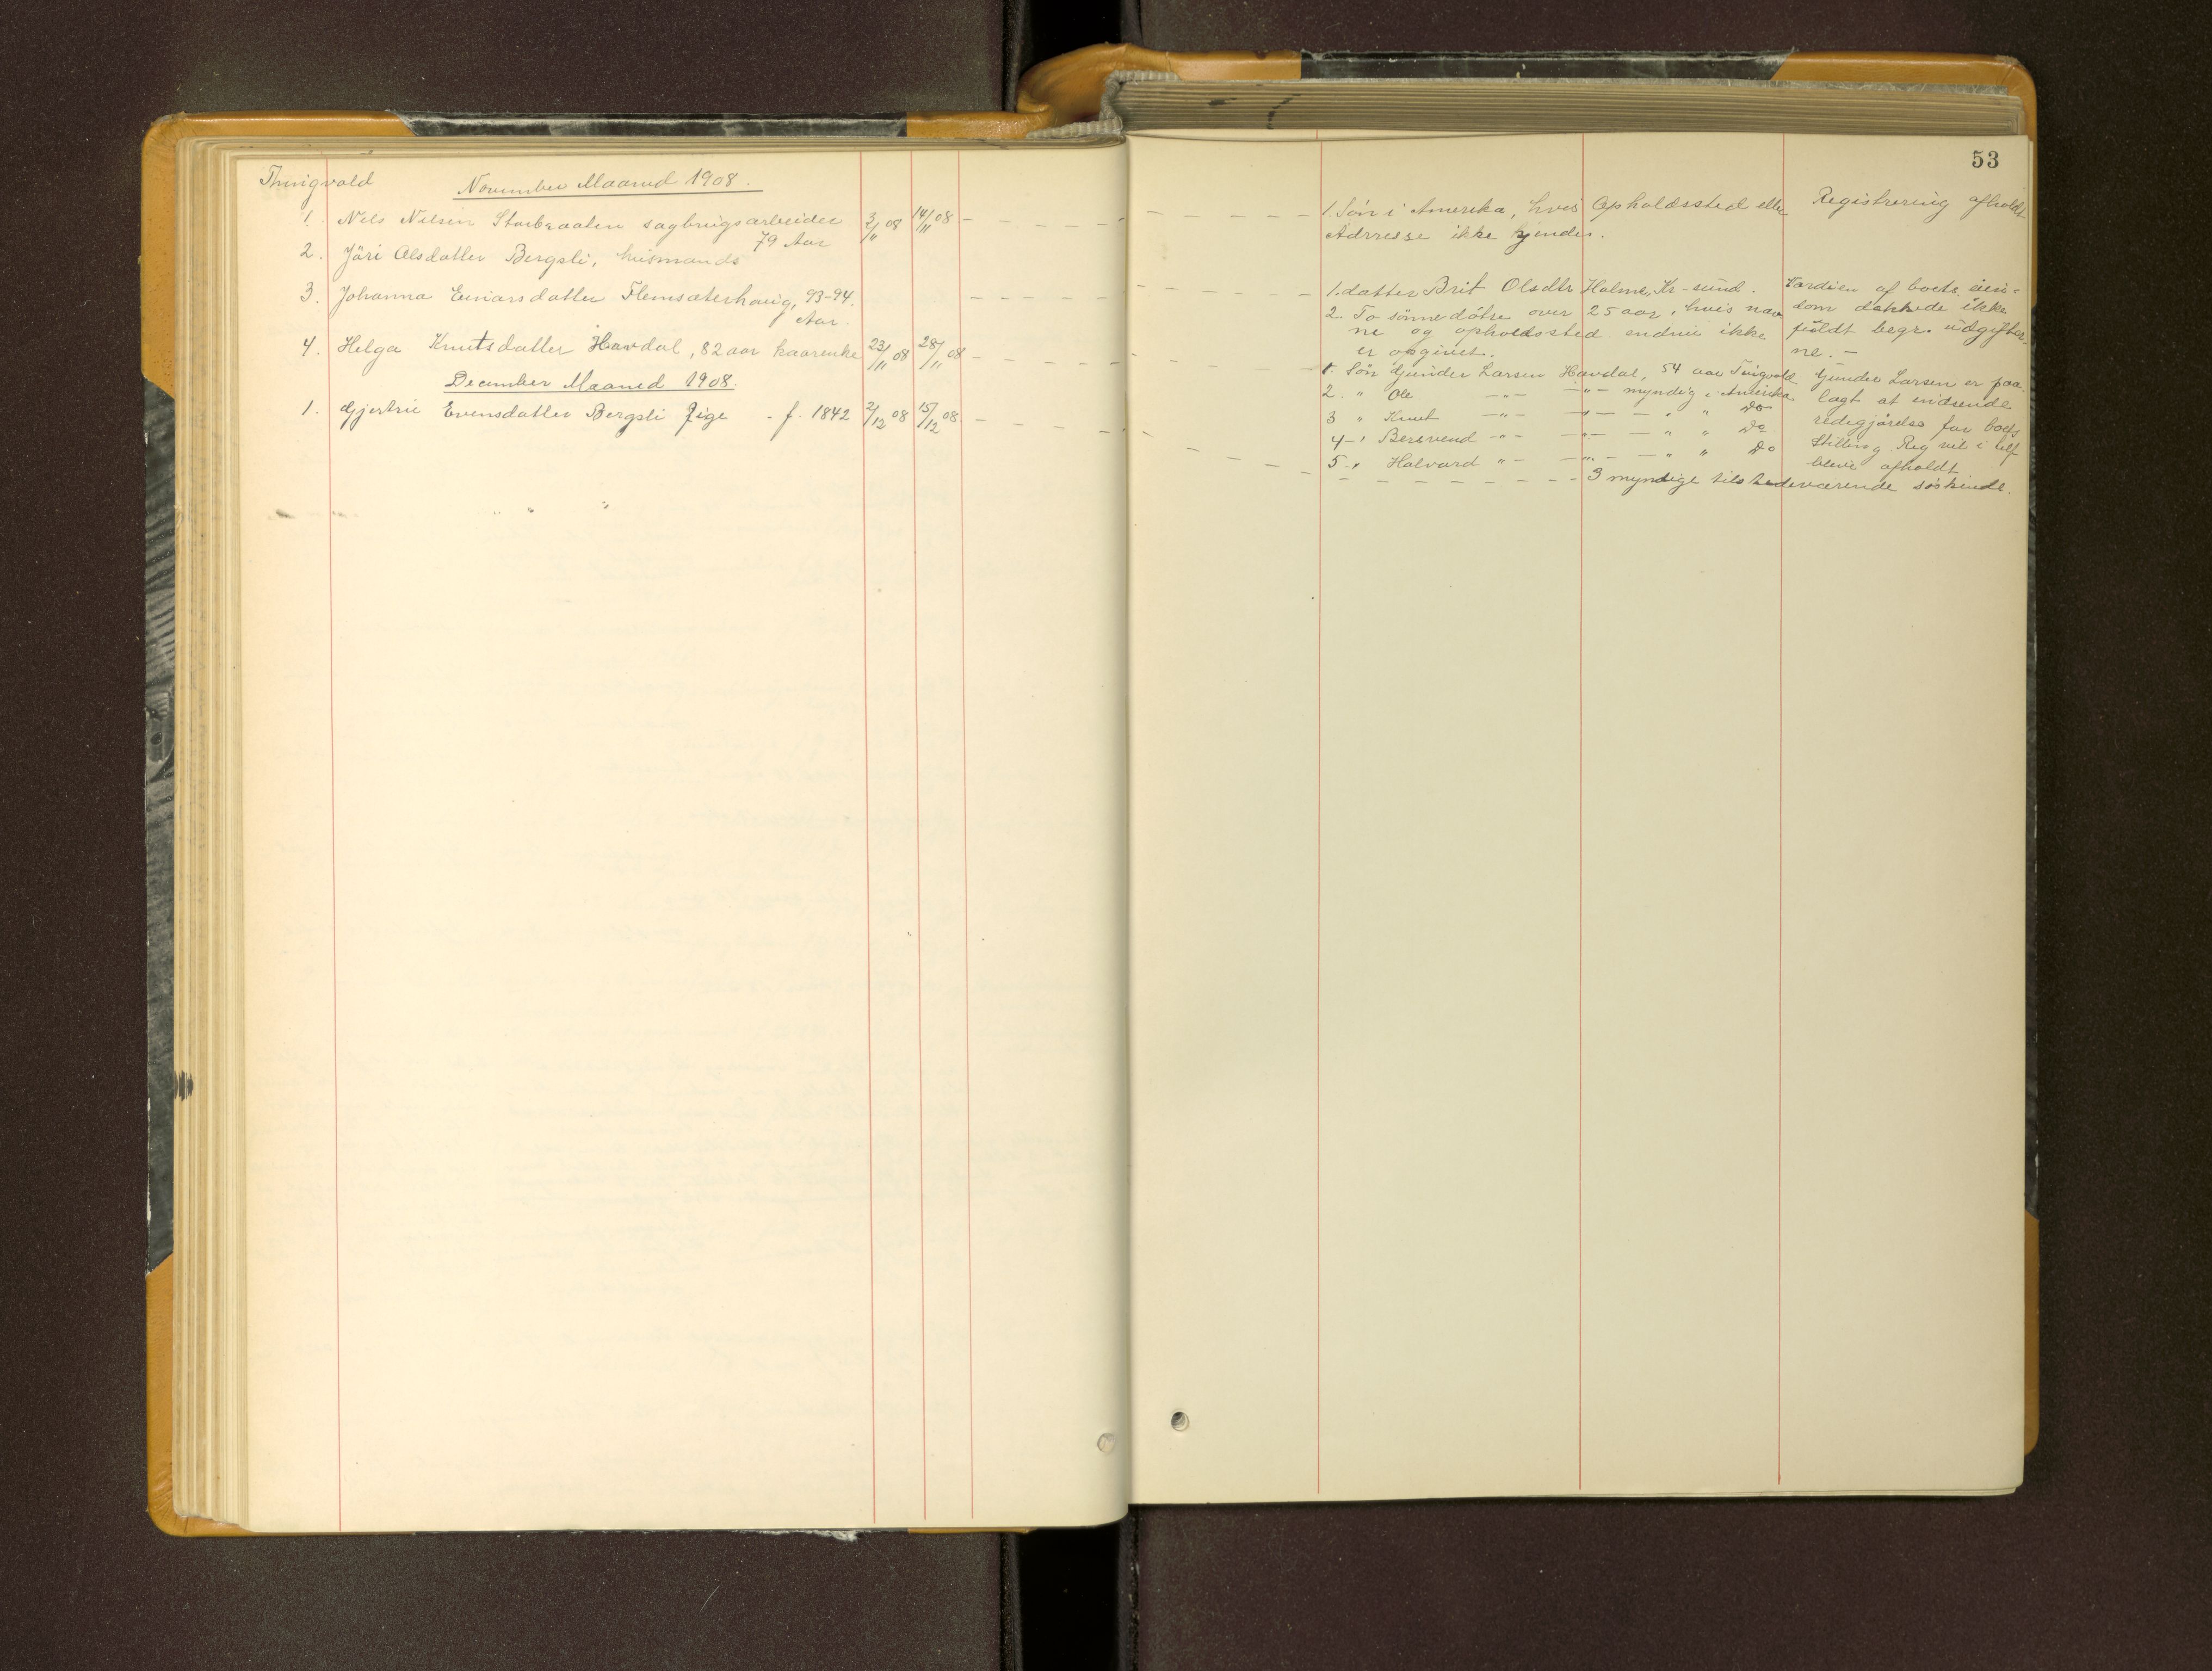 53
Thingvold
November Maaned 1908.
1. Nels Nilsen Storbraaten sagbrugsarbeider 3/11 08 14/11 08
79 Aar
2. Jöri Olsdatter Bergsli, husmands
3. Johanna Einarsdatter Flemsæterhaug, 93-94.
Aar.
4. Helga Knutsdatter Havdal, 82 aar kaarenke 23/11 08 28/11 08
December Maaned 1908.
1. Gjertrü Evensdatter Bergsli Pige - f. 1842 2/12 08 15/12 08
1. Sön i Amerika, hvis Opholdssted eller Registrering afholdt
Adresse ikke kjendes.
1. datter Brit Olsdtr Holme, Kr-sund. Værdien af boets eien-
2. To sönnedötre over 25 aar, hvis nav dom dækkede ikke
ne og opholdssted endnu ikke fuldt begr. udgifter
er opgivet. ne. -
1. Sön Gunder Larsen Havdal, 54 aar Tingvold Gunder Larsen er paa-
2. " Ole -"- -"- myndig i Amerika lagt at indsende
3 " Knut -"- -"- - " " Do redegjörelse for boets
4 - " Beresvend -"- -"- - " " Do Stilling. Reg vil i tilf
5 - " Halvard "- -"- - " " Do blive afholdt
3 myndige tilstedeværende söskende.